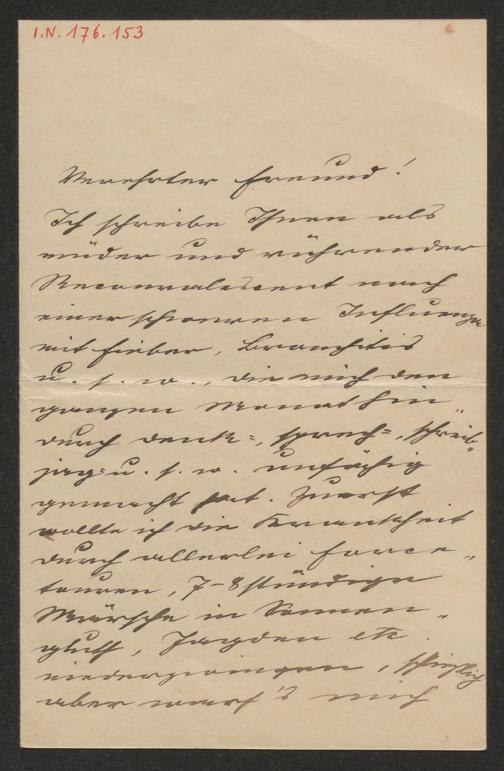 I.N. 176.153
Verehrter Freund!
Ich schreibe Ihnen als
müder und rührender
Reconvalescent nach
einer schweren Influenza
mit Fieber, Bronchitis
u. s. w., die mich den
ganzen Monat hin„
durch denk=, sprech=, schreib„
jag= u. s. w. unfähig
gemacht hat. Zuerst
wollte ich die Krankheit
durch allerlei Force„
touren, 7-8stündige
Märsche in Sonnen„
gluth, Jagden etc.
niederzwingen, schließlich
aber warf's mich